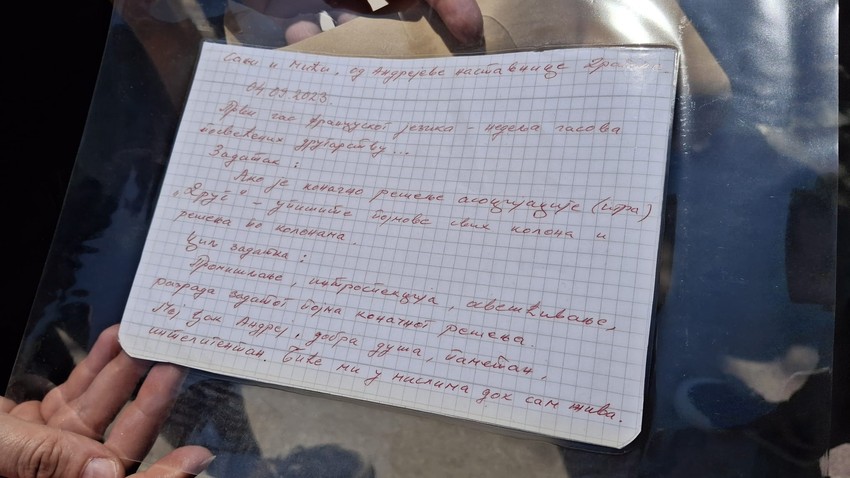 Саши и Мики, од Андрејеве наставнице
04.09.2023.
Први час француског језика - недеља часова
посвећених другарству...
Задатак:
Ако је коначно решење асоцијације (игра)
„Друг“ - упишите појмове свих колона и
решења по колонама.
Циљ задатка:
Промишљање, интроспекција, освешћивање,
разрада задатог појма коначног решења.
Мој ђак Андреј, добра душа, паметан,
интелигентан. Биће ми у мислима док сам жива.